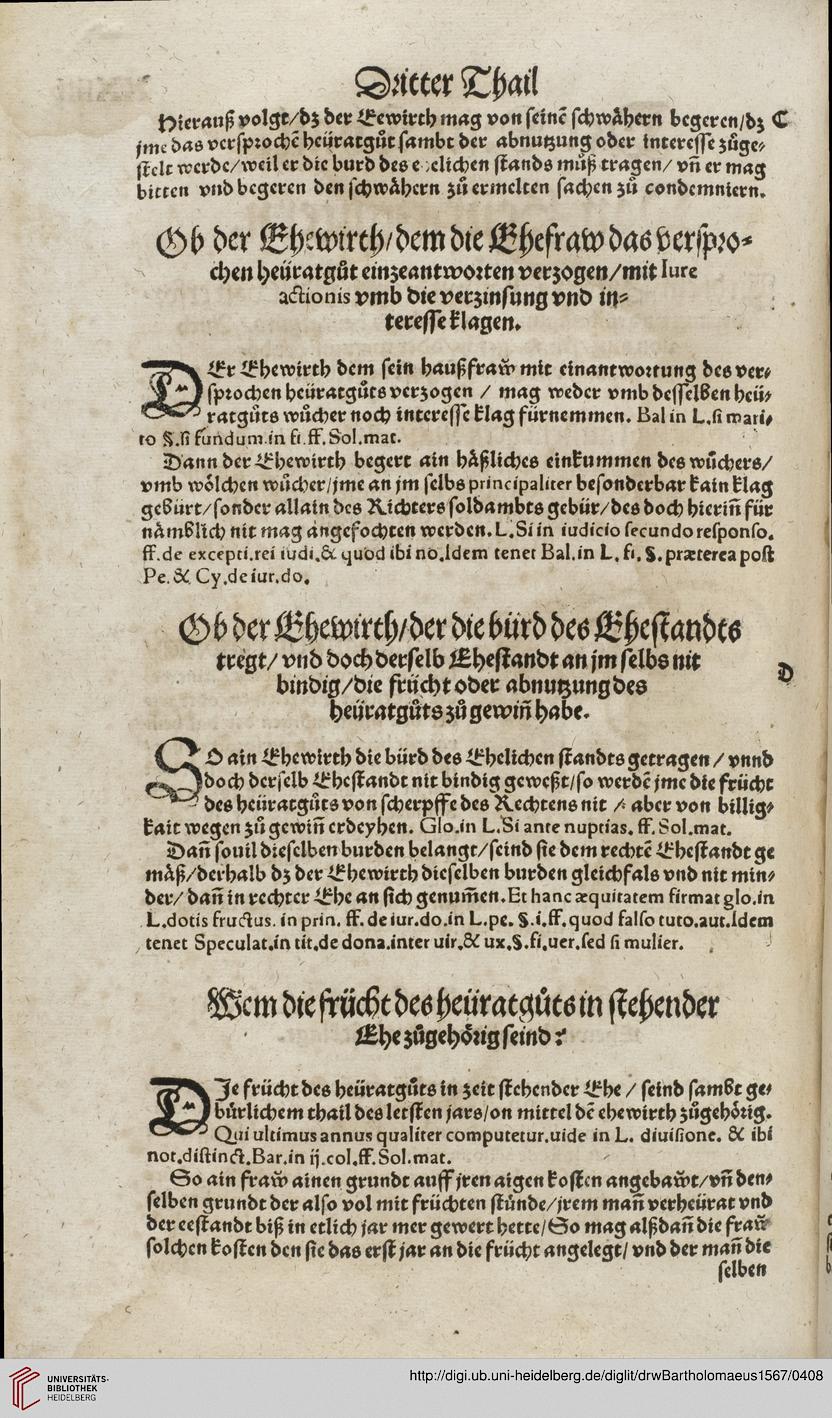 Dritter Thail
Hierauß volgt/dz der Eewirth mag von seinẽ schwåhern begeren/dz C
jme das versprochẽ heüratgůt sambt der abnutzung oder interesse zůge⸗
stelt werde/weil er die burd des eelichen stands můß tragen/ vñ er mag
bitten vnd begeren den schwåhern zů ermelten sachen zů condemniern.
Ob der Ehewirth/dem die Ehefraw das verspro⸗
chen heüratgůt einzeantworten verzogen/mit Iure
actionis vmb die verzinsung vnd in⸗
teresse klagen.
DEr Ehewirth dem sein haußfraw̃ mit einantwortung des ver⸗
sprochen heüratgůts verzogen / mag weder vmb desselben heü⸗
ratgůts wůcher noch interesse klag fürnemmen. Bal in L.si mari⸗
to §.si fundum.in fi.ff. Sol.mat.
Dann der Ehewirth begert ain håßliches einkummen des wůchers/
vmb wölchen wůcher/jme an jm selbs principaliter besonderbar kain klag
gebürt/sonder allain des Richters soldambts gebür/des doch hieriñ für
nåmblich nit mag angefochten werden. L. Si in iudicio secundo responso.
ff.de excepti.rei iudi.& quod ibi no.Idem tenet Bal.in L. fi. §. præterea post
Pe. & Cy.de iur.do.
Ob der Ehewirth/der die bürd des Ehestandts
tregt/ vnd doch derselb Ehestandt an jm selbs nit
bindig/die frücht oder abnutzung des D
heüratgůts zů gewiñ habe.
SO ain Ehewirth die bürd des Ehelichen standts getragen / vnnd
doch derselb Ehestandt nit bindig geweßt/so werdẽ jme die frücht
des heüratgůts von scherpffe des Rechtens nit / aber von billig⸗
kait wegen zů gewiñ erdeyhen. Glo.in L.Si ante nuptias. ff. Sol.mat.
Dañ souil dieselben burden belangt/seind sie dem rechtẽ Ehestandt ge
måß/derhalb dz der Ehewirth dieselben burden gleichfals vnd nit min⸗
der/ dañ in rechter Ehe an sich genum̃en. Et hanc æquitatem firmat glo.in
L.dotis fructus. in prin. ff. de iur.do.in L.pe. §.i.ff.quod falso tuto.aut.Idem
tenet Speculat.in tit.de dona.inter uir.& ux.§.fi.uer.sed si mulier.
Wem die frücht des heüratgůts in stehender
Ehe zůgehörig seind?
DJe frücht des heüratgůts in zeit stehender Ehe / seind sambt ge⸗
bürlichem thail des letsten jars/on mittel dẽ ehewirth zůgehörig.
Qui ultimus annus qualiter computetur.uide in L. diuisione. & ibi
not.distinct.Bar.in ij.col.ff.Sol.mat.
So ain fraw̃ ainen grundt auff jren aigen kosten angebaw̃t/vñ den⸗
selben grundt der also vol mit früchten stůnde/jrem mañ verheürat vnd
der eestandt biß in etlich jar mer gewert hette/So mag alßdañ die fraw̃
solchen kosten den sie das erst jar an die frücht angelegt/ vnd der mañ die
selben
UNIVERSITÄTS-
BIBLIOTHEK
HEIDELBERG
http://digi.ub.uni-heidelberg.de/diglit/drwBartholomaeus1567/0408